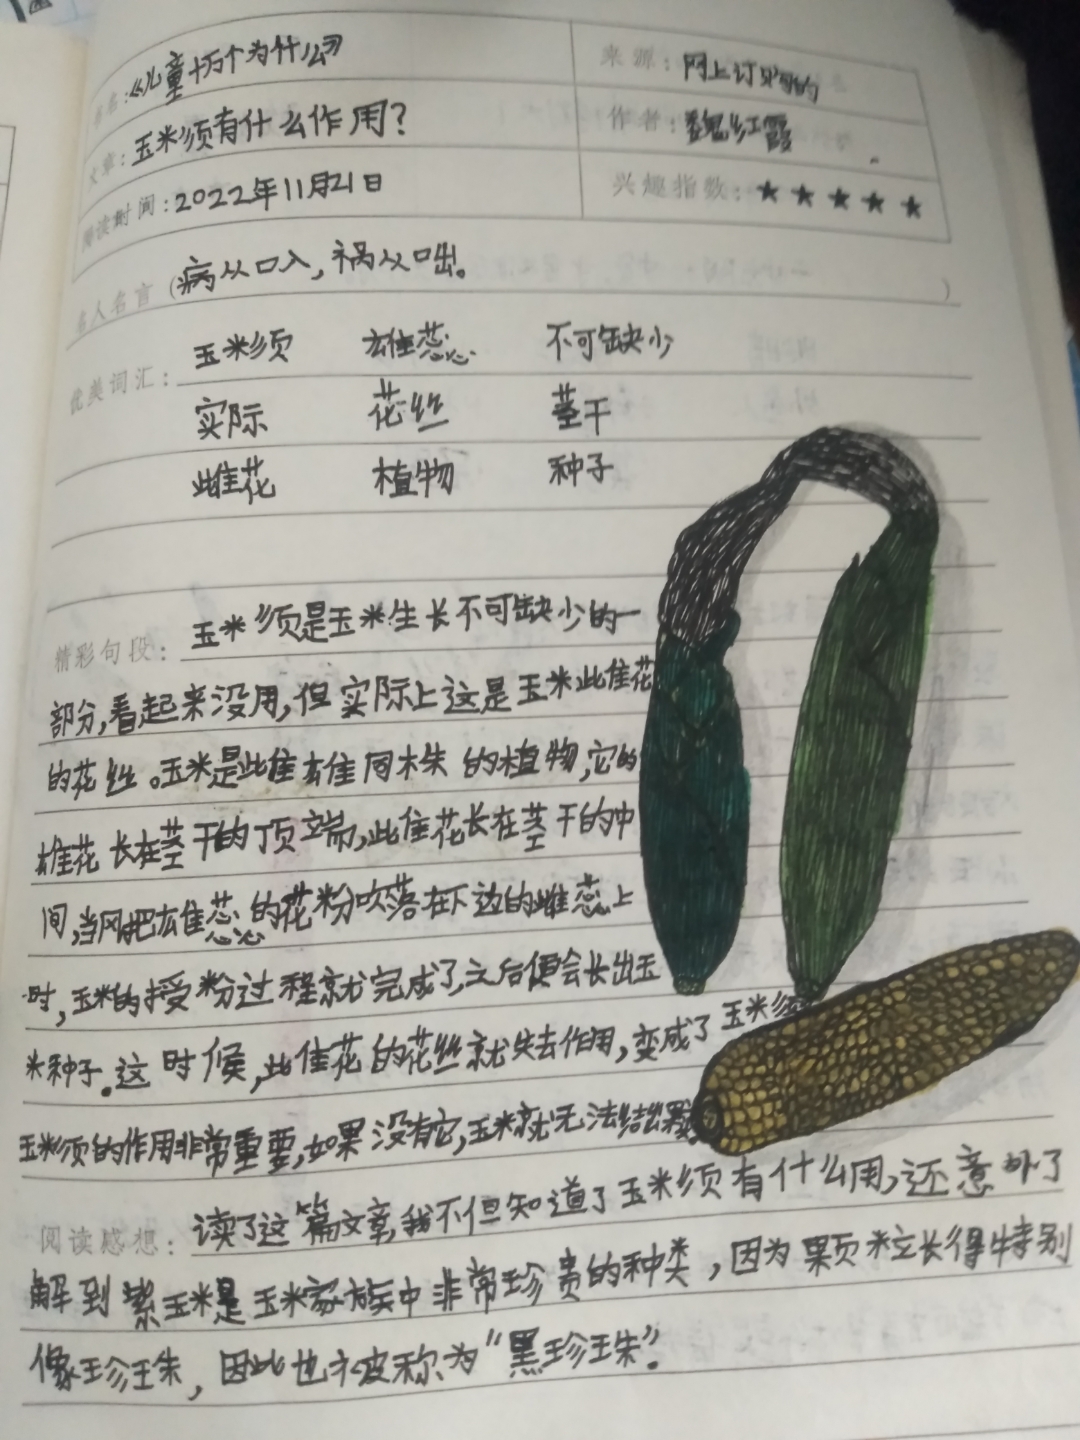 书名:《儿童十万个为什么》 来源:网上订购的
文章:玉米须有什么作用? 作者:魏红霞
阅读时间:2022年11月21日 兴趣指数:★★★★★
名人名言(病从口入,祸从口出。)
优美词汇: 玉米须 雄蕊 不可缺少
实际 花丝 茎干
雌花 植物 种子
精彩句段: 玉米须是玉米生长不可缺少的一
部分,看起来没用,但实际上这是玉米雌花
的花丝。玉米是雌雄同株的植物,它的
雄花长在茎干的顶端,雌花长在茎干的中
间,当风把雄蕊的花粉吹落在下边的雌蕊上
时,玉米的授粉过程就完成了,之后便会长出玉
米种子。这时候,雌花的花丝就失去作用,变成了玉米须
玉米须的作用非常重要,如果没有它,玉米就无法结出果
阅读感想: 读了这篇文章,我不但知道了玉米须有什么用,还意外了
解到紫玉米是玉米家族中非常珍贵的种类,因为颗粒长得特别
像珍珠,因此也被称为“黑珍珠”。